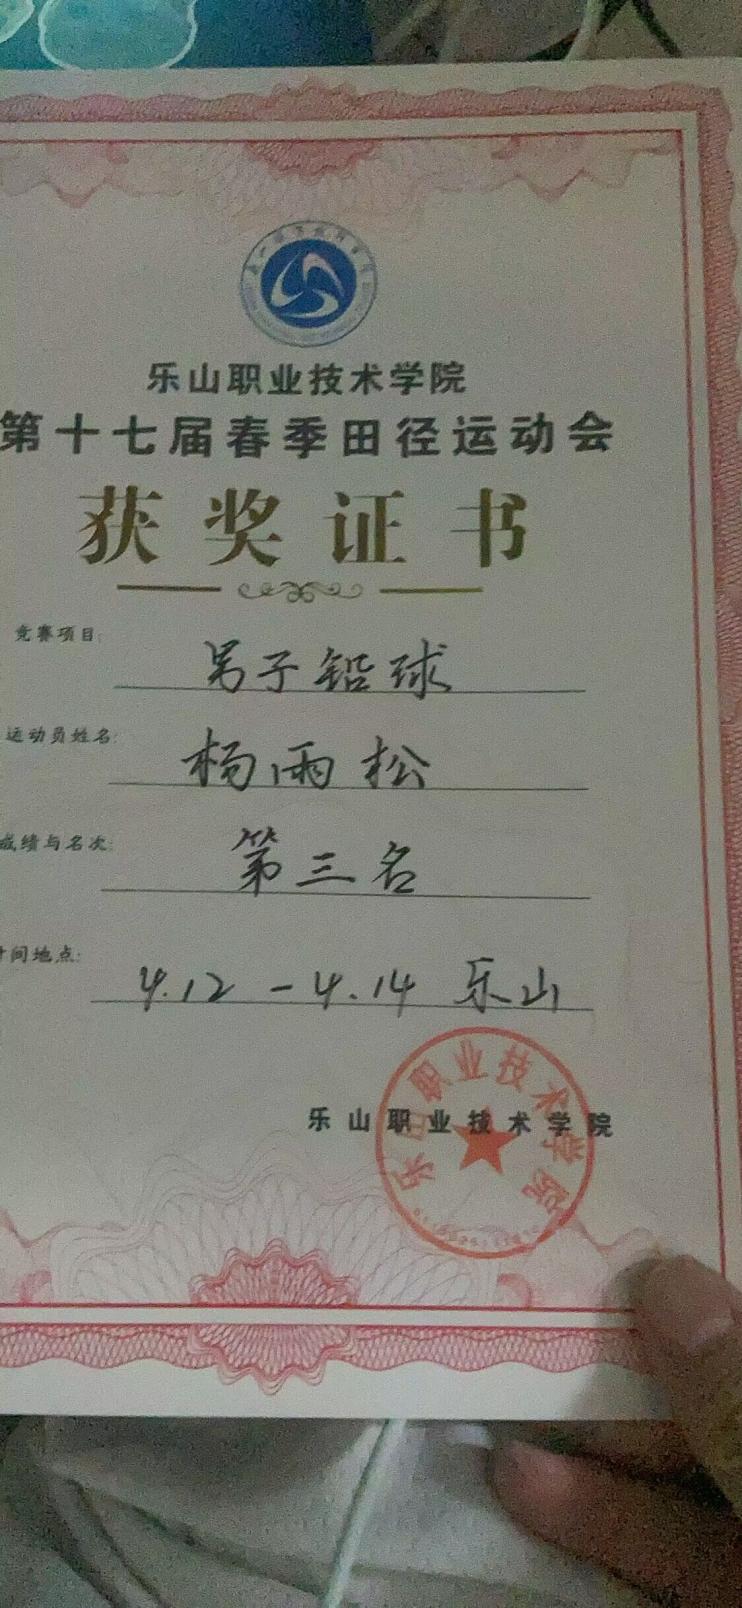 乐山职业技术学院
第十七届春季田径运动会
获奖证书
竞赛项目:
男子铅球
运动员姓名:
杨雨松
成绩与名次:
第三名
时间地点:
4.12-4.14 乐山
乐山职业技术学院
乐山职业技术学院